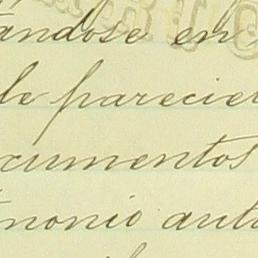 ándose en
le pareciei
cumentos
monio anto